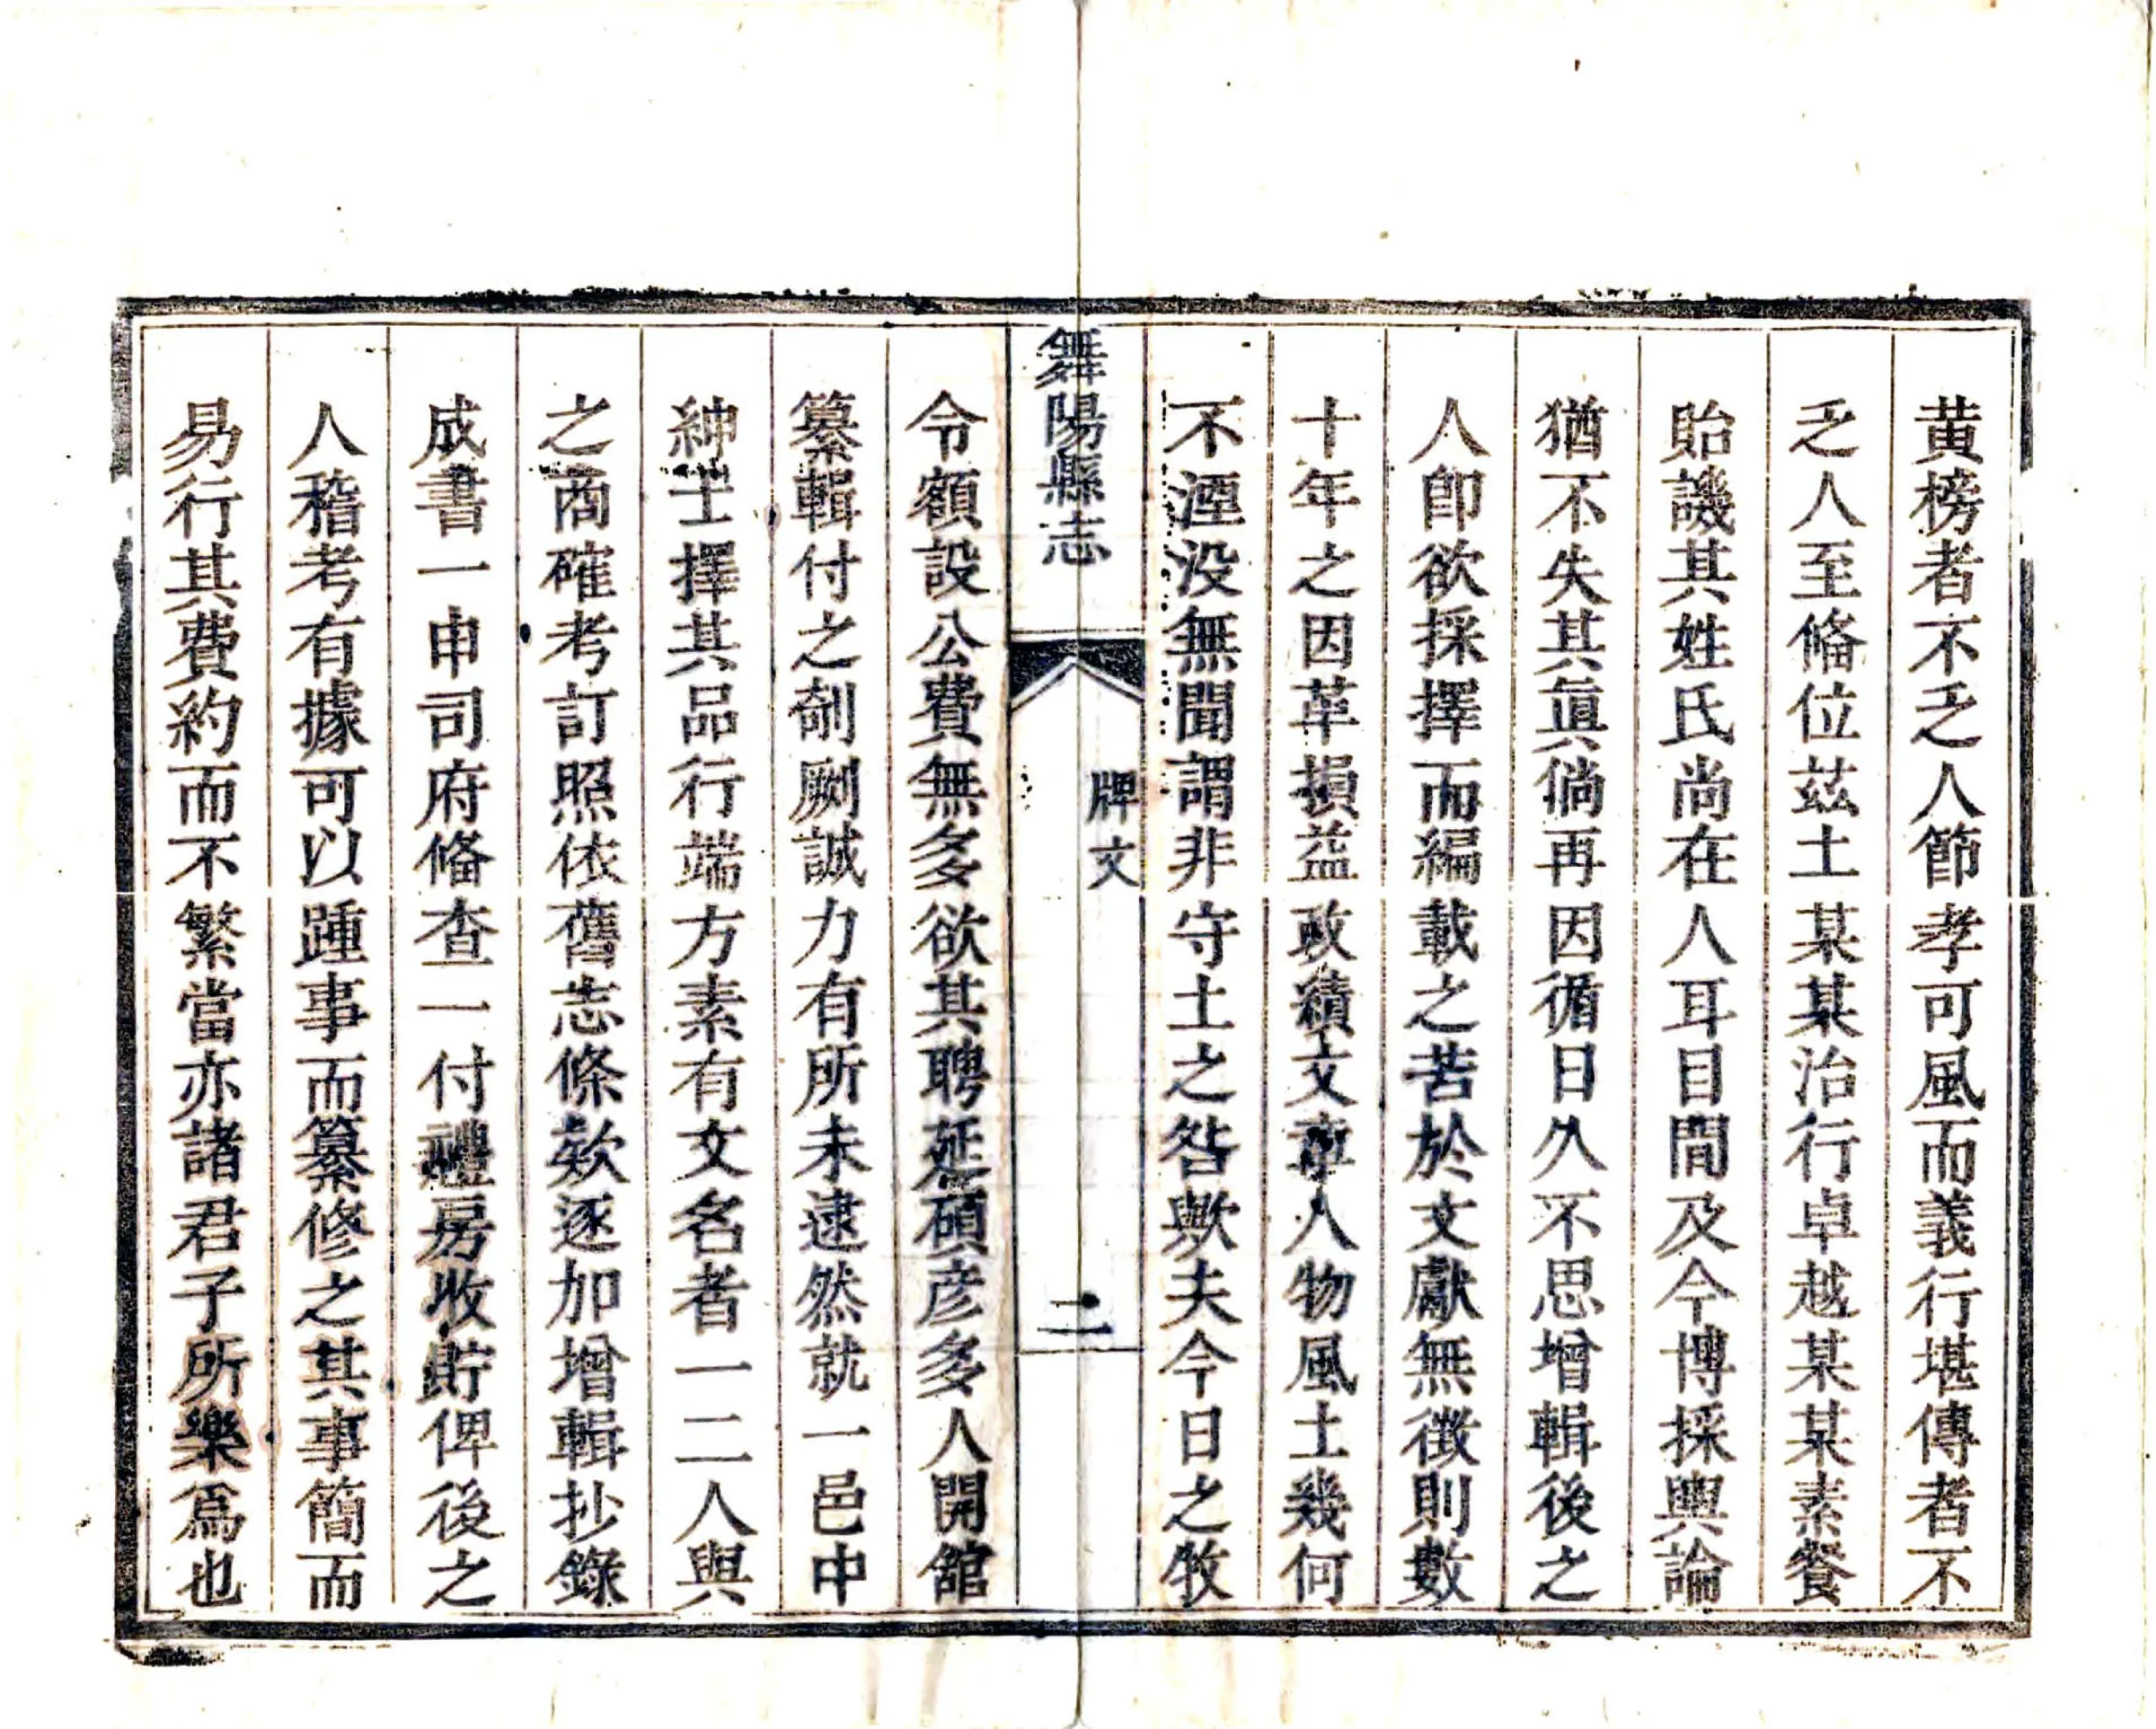 黄榜者不乏人節孝可風而義行堪傳者不
乏人至俻位茲土某某治行卓越某某素餐
貽譏其姓氏尚在人耳目間及今博採輿論
猶不失其眞倘再因循日久不思增輯後之
人卽欲採擇而編載之苦於文獻無徵則數
十年之因革損益政績文章人物風土幾何
不湮没無聞謂非守土之咎歟夫今日之牧
舞陽縣志
牌文
二
令額設公費無多欲其聘延碩彦多人開舘
纂輯付之剞劂誠力有所未逮然就一邑中
紳士擇其品行端方素有文名者一二人與
之商確考訂照依舊志條欵逐加增輯抄錄
成書一申司府俻查一付禮房收貯俾後之
人稽考有據可以踵事而纂修之其事簡而
易行其費約而不繁當亦諸君子所樂爲也